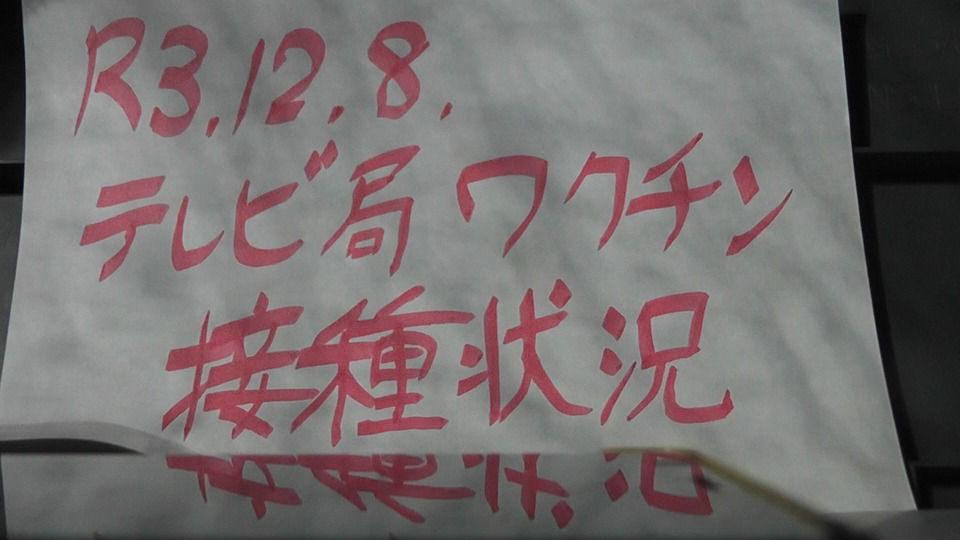 R3.12.8.
テレビ局ワクチン
接種状況